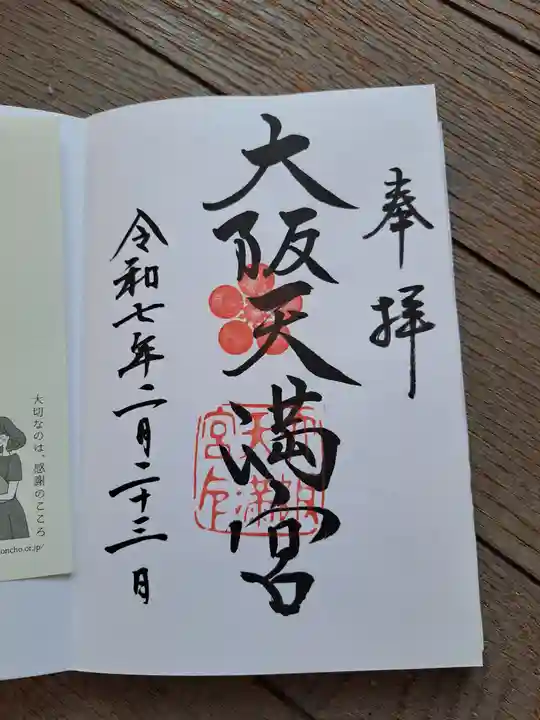 奉拝
大阪天満宮
令和七年二月二十三日
大切なのは、感謝のこころ
oncho.or.jp/